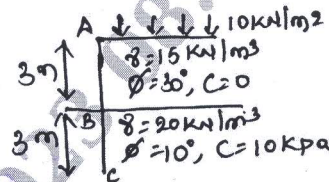 A 10KN/m2
3m
γ=15KN/m3
φ=30°, C=0
B γ=20KN/m3
3m
φ=10°, C=10KPa
C